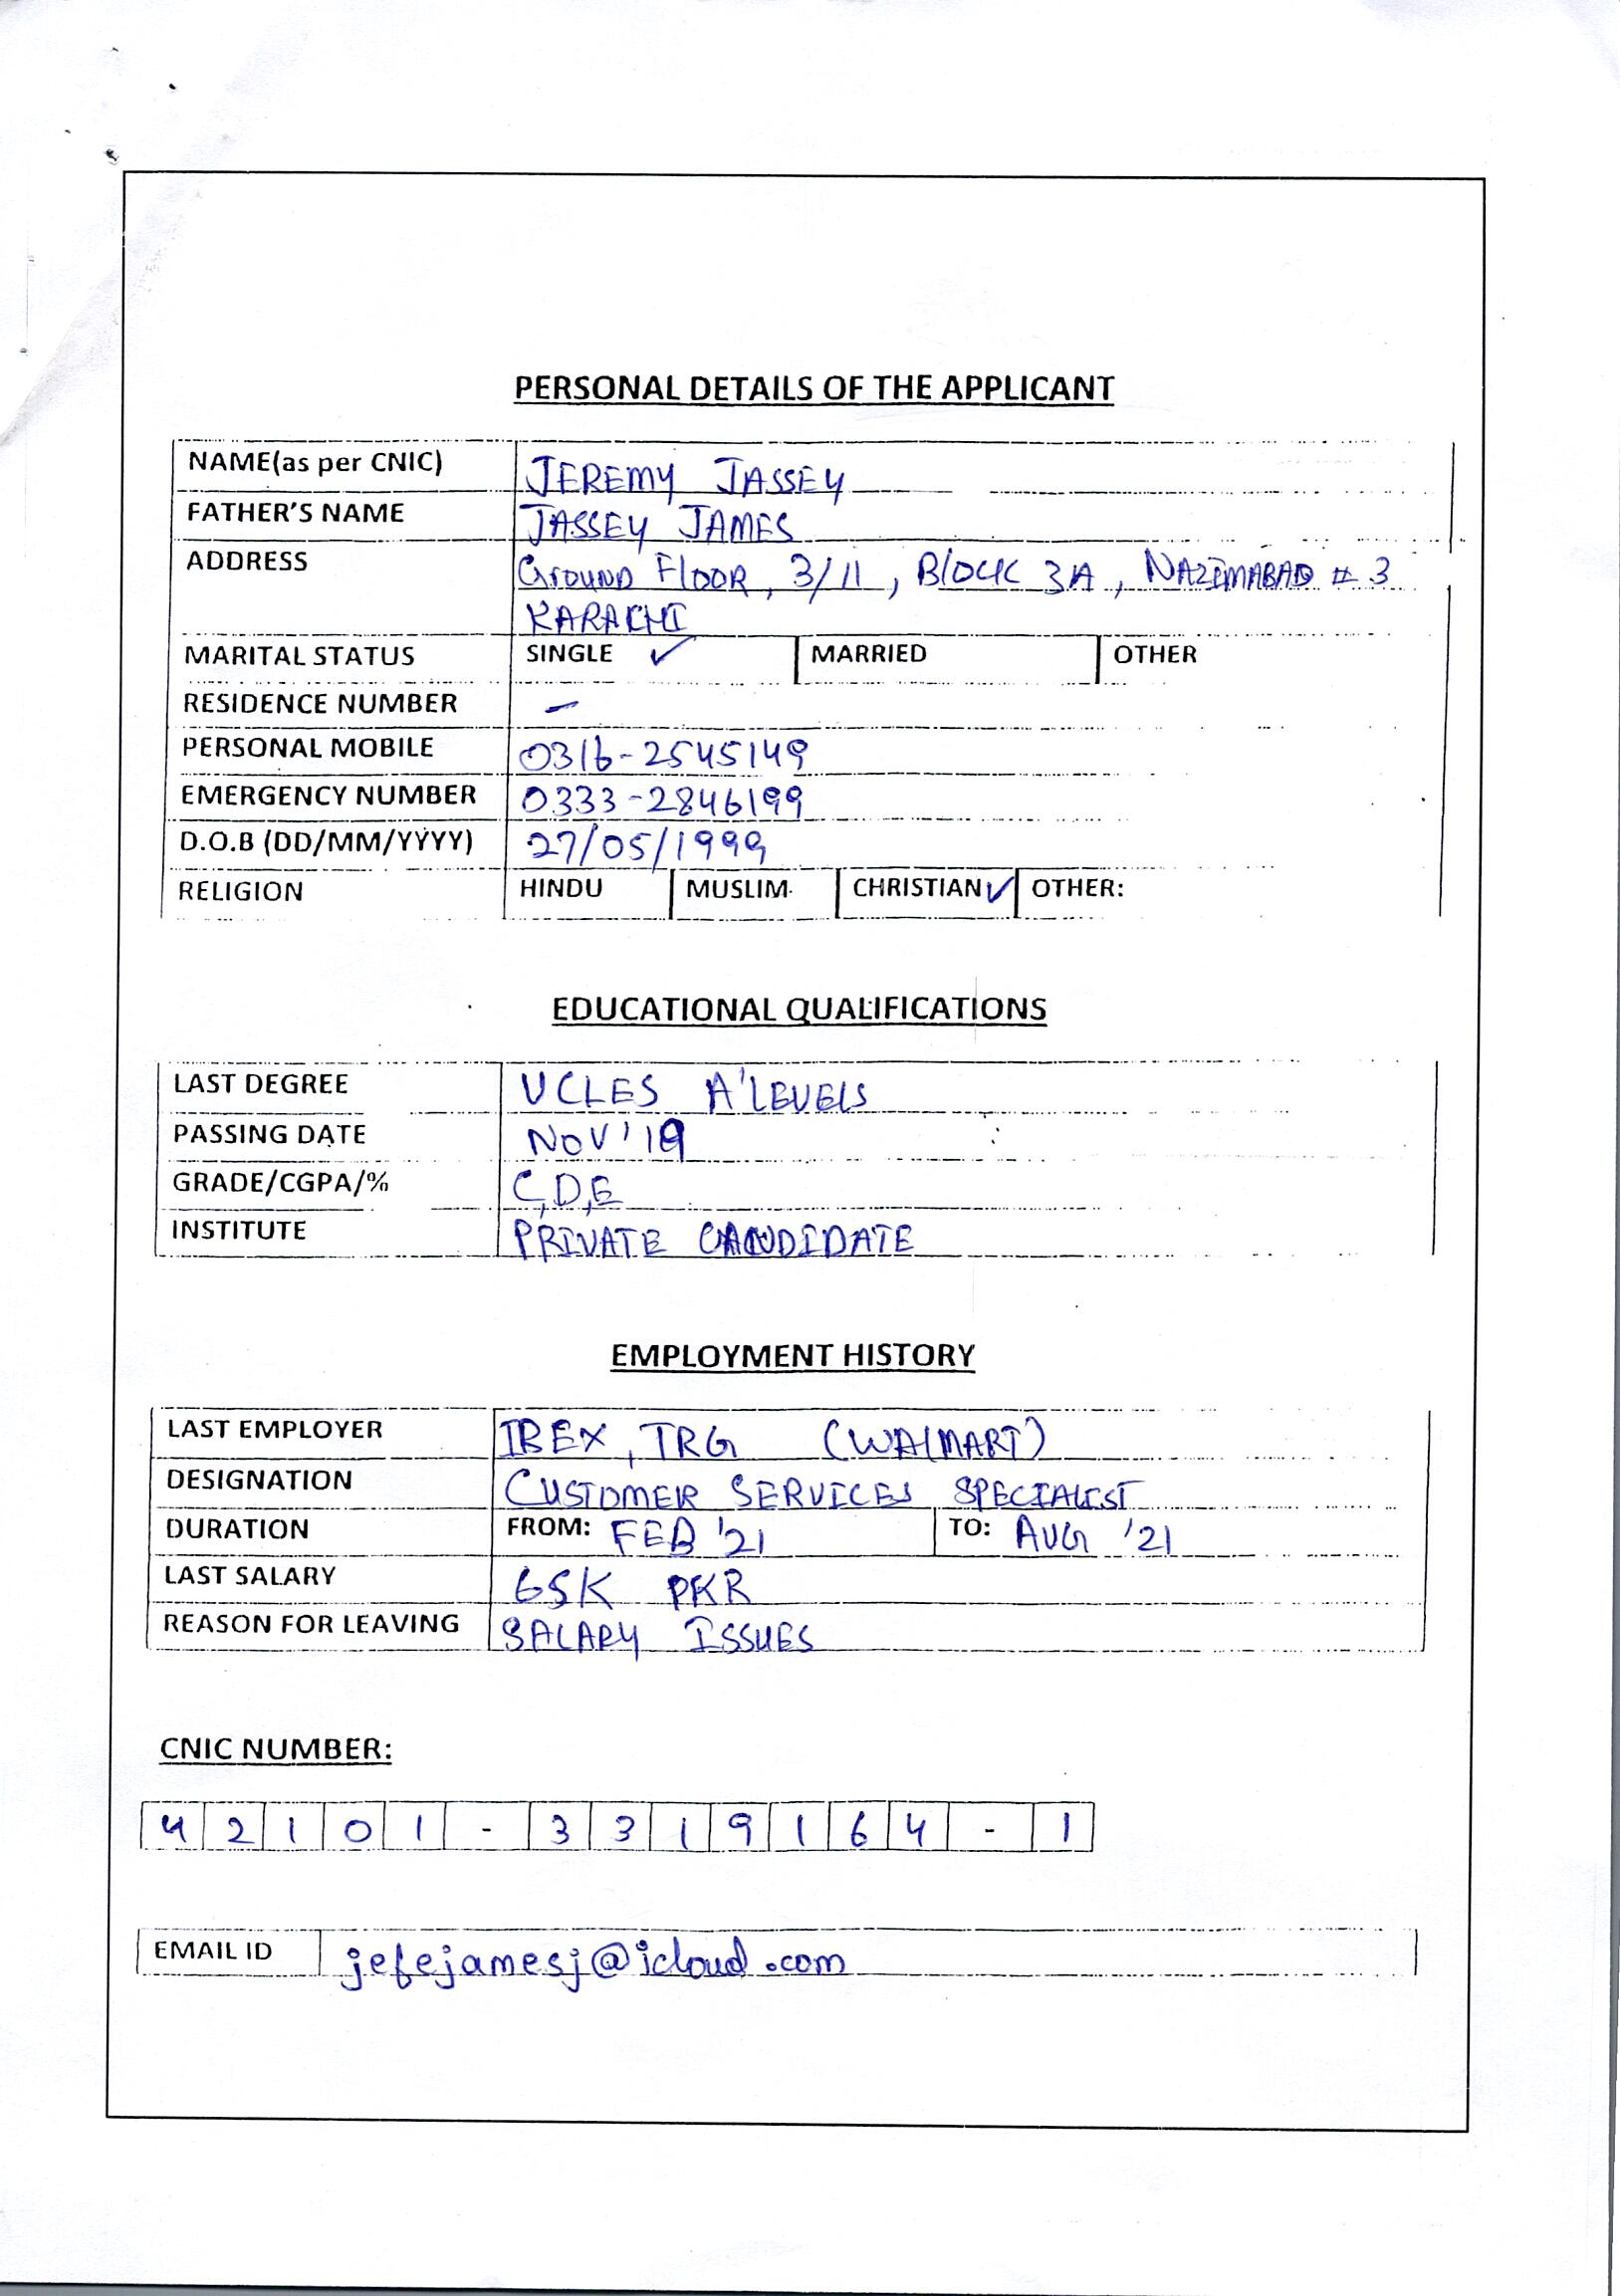 PERSONAL DETAILS OF THE APPLICANT
NAME(as per CNIC) JEREMY JASSEY
FATHER'S NAME JASSEY JAMES
ADDRESS GROUND FLOOR, 3/11, BLOCK 3A, NAZIMABAD # 3
KARACHI
MARITAL STATUS SINGLE ✓ MARRIED OTHER
RESIDENCE NUMBER -
PERSONAL MOBILE 0316-2545149
EMERGENCY NUMBER 0333-2846199
D.O.B (DD/MM/YYYY) 27/05/1999
RELIGION HINDU MUSLIM CHRISTIAN ✓ OTHER:
EDUCATIONAL QUALIFICATIONS
LAST DEGREE UCLES A'LEVELS
PASSING DATE NOV'19
GRADE/CGPA/% C,D,E
INSTITUTE PRIVATE CANDIDATE
EMPLOYMENT HISTORY
LAST EMPLOYER IBEX, TRG (WALMART)
DESIGNATION CUSTOMER SERVICES SPECIALIST
DURATION FROM: FEB '21 TO: AUG '21
LAST SALARY 65K PKR
REASON FOR LEAVING SALARY ISSUES
CNIC NUMBER:
42101-3319164-1
EMAIL ID jefejamesj@icloud.com